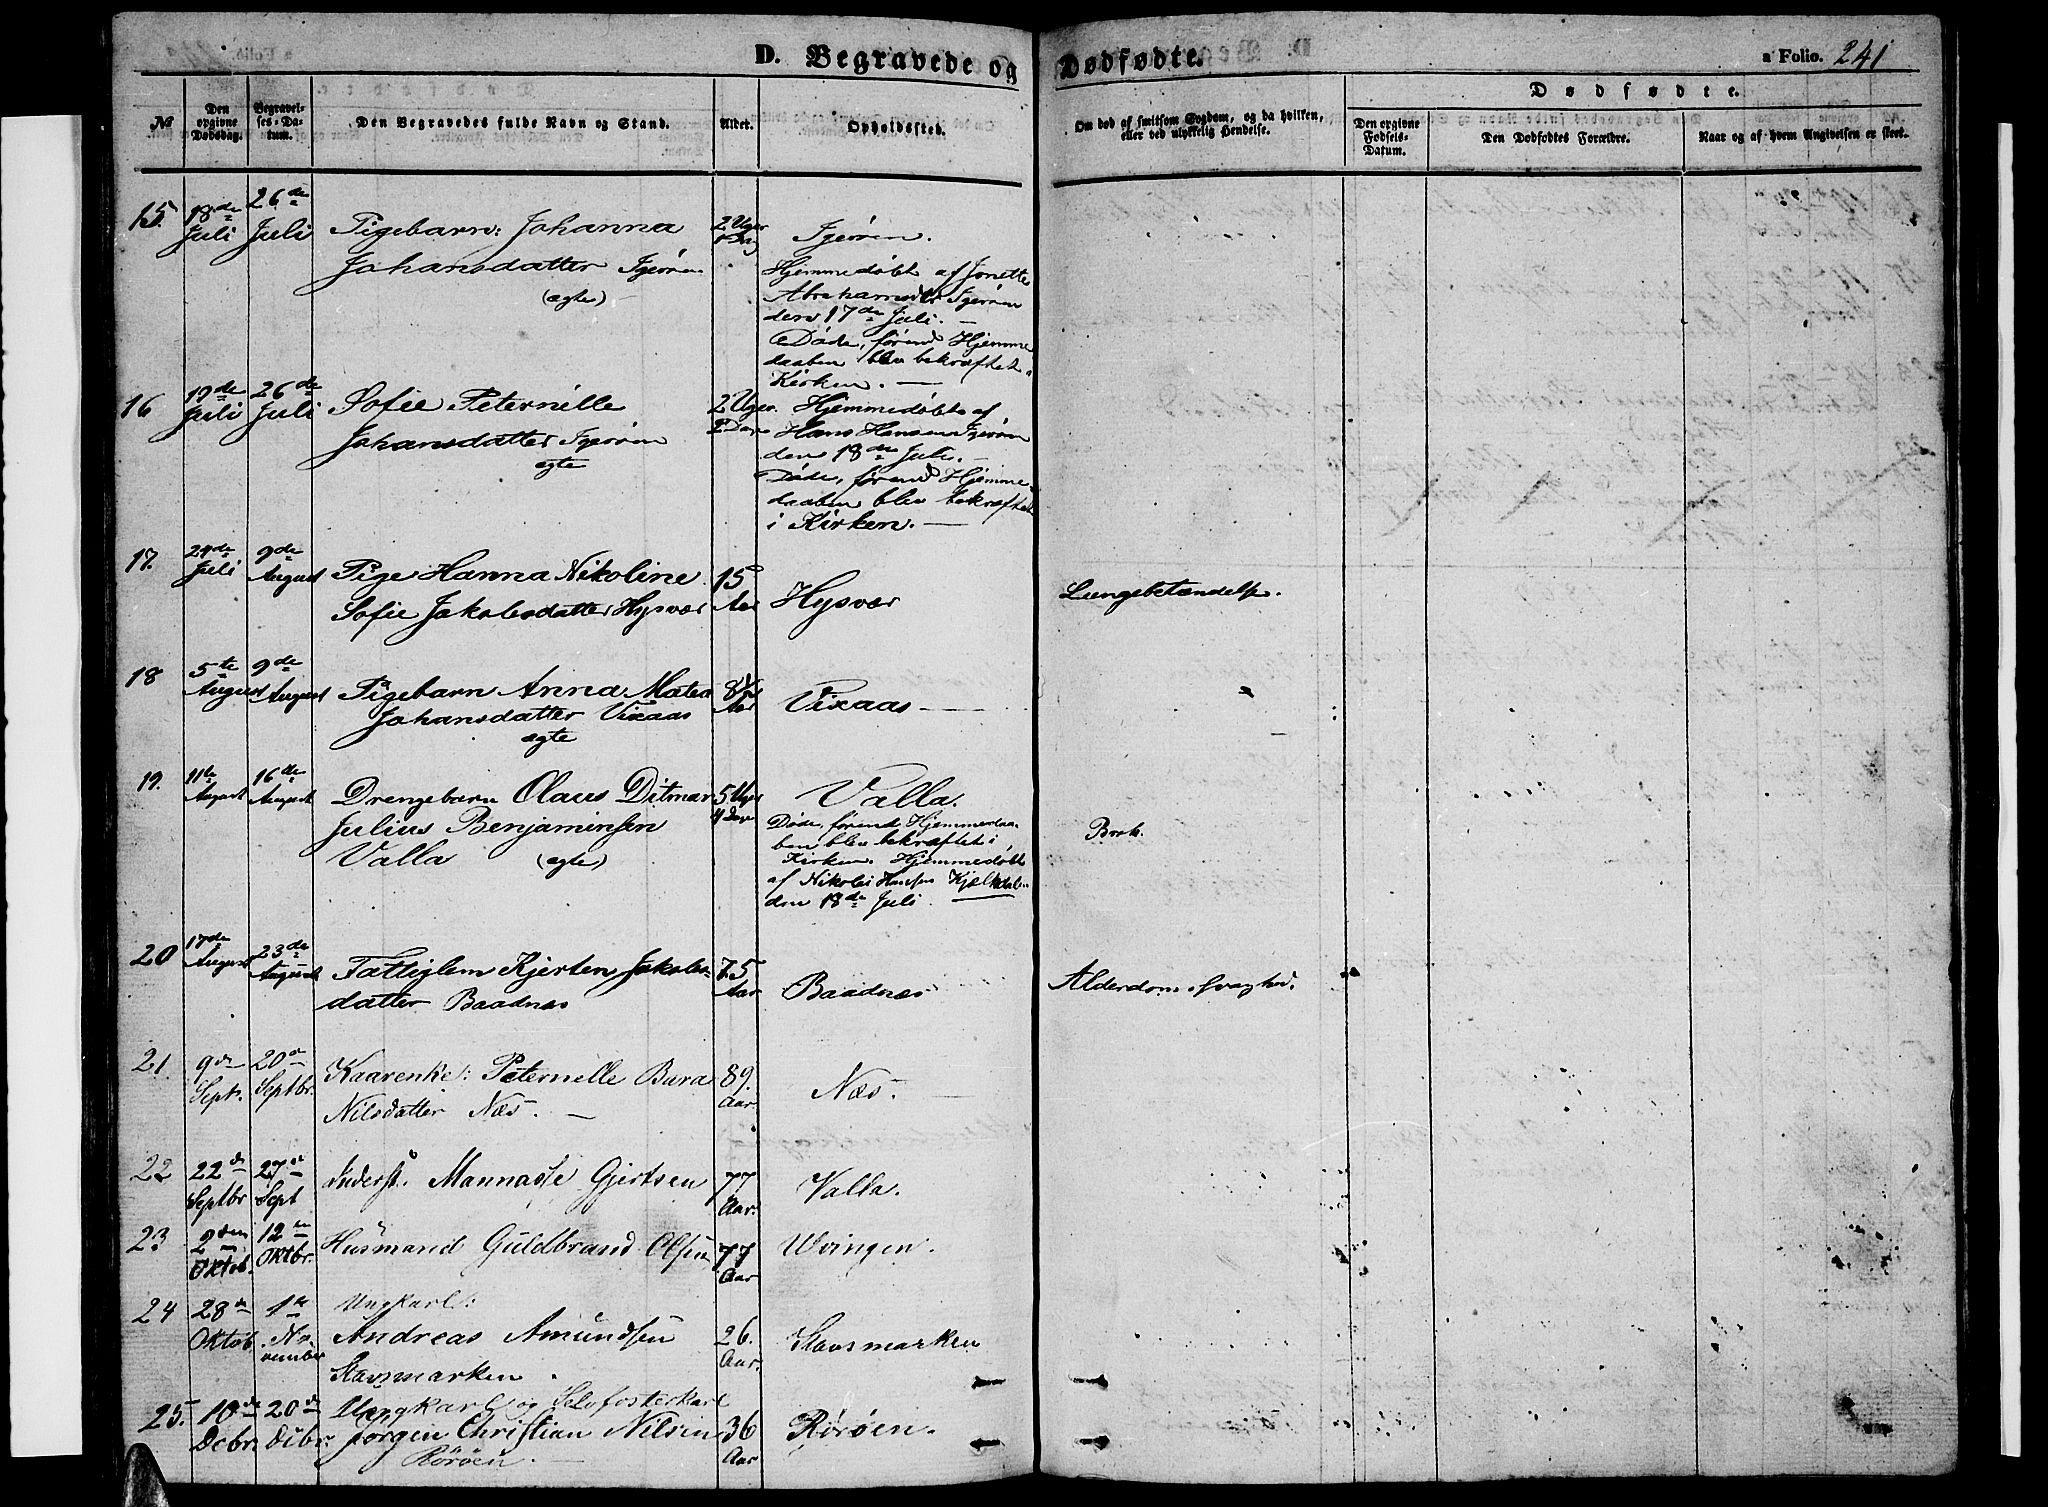 D. Begravede og Dødfødte.
a Folio. 241
No
Den opgivne Dødsdag.
Begravelses-Datum.
Den Begravedes fulde Navn og Stand.
Alder.
Opholdssted.
Om død af smitsom Sygdom, og da hvilken, eller ved ulykkelig Hendelse.
Dødfødte.
Den opgivne Fødsels-Datum.
Den Dødfødtes Forældre.
Naar og af hvem Angivelsen er skeet.
15. 18de Juli 26de Juli Pigebarn: Johanna 2 Uger 1 Dag Tjerøen.
Johansdatter Tjerøen
(ægte)
Hjemmedøbt af Jonette
Abrahamsdtr Tjerøen
den 17de Juli.
Døde, førend Hjemme
daaben blev bekræftet i
Kirken.
16 19de Juli 26de Juli Sofie Peternille 2 Uger 2 Dage Hjemmedøbt af
Johansdatter Tjerøen Hans Hansen Tjerøen
ægte den 18de Juli.
Døde, førend Hjemme
daaben blev bekræftet
i Kirken.
17. 24de Juli 9de August Pige Hanna Nikoline 15 Aar Hysvær Lungebetændelse.
Sofie Jakobsdatter Hysvær
18 5te August 9de August Pigebarn Anna Matea 8½ Aar Vixaas
Johansdatter Vixaas
ægte
19. 11te August 16de August Drengebarn Olaus Ditmar 5 Uger 4 Dage Valla. Brok.
Julius Benjaminsen
Valla (ægte)
Døde, førend Hjemmedaa-
ben blev bekræftet i
Kirken. Hjemmedøbt
af Nikolai Hansen Kjælkdalen
den 18de Juli.
20 17de August 23de August Fattiglem Kjersten Jakobs- 75 Aar Baadnæs Alderdomssvaghed.
datter Baadnæs
21. 9de Sept. 20de Septbr. Kaarenke: Peternelle Bara 89. Aar. Næs.
Nilsdatter Næs.
22 22de Septbr 27de Sept Inderst. Mannasse Gjertsen 77 Aar. Valla.
23 2den Oktob. 12te Oktbr. Husmand Guldbrand Olsen 77 Aar Uvingen.
24 28de Oktob. 1te November Ungkarl:
Andreas Amundsen 26. Aar. Stavsmarken
Stavsmarken.
25. 10de Debr. 20de Debr. Ungkarl og Selvfosterkarl
Jørgen Christian Nilsen 36 Aar Rørøen.
Rørøen.